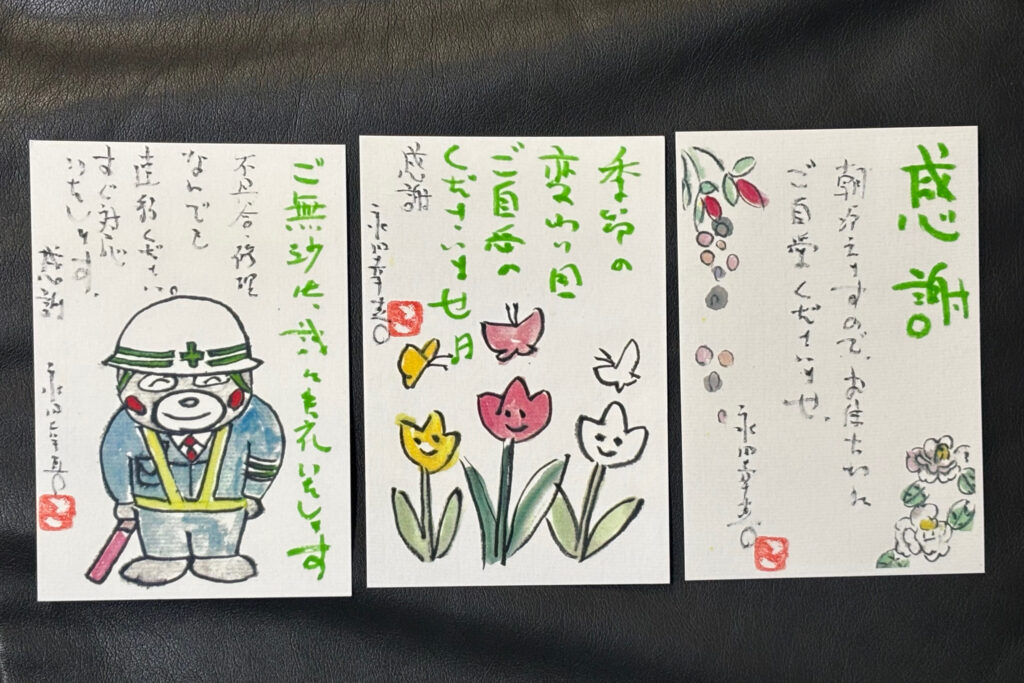 ご無沙汰、
不具合、修理
なんでも
連絡ください。
すぐ対応
いたします。
感謝
永田
季節の
変わり目
ご自愛の
くださいませ
感謝
永田
感謝。
朝冷えますので、お体
ご自愛くださいませ。
永田